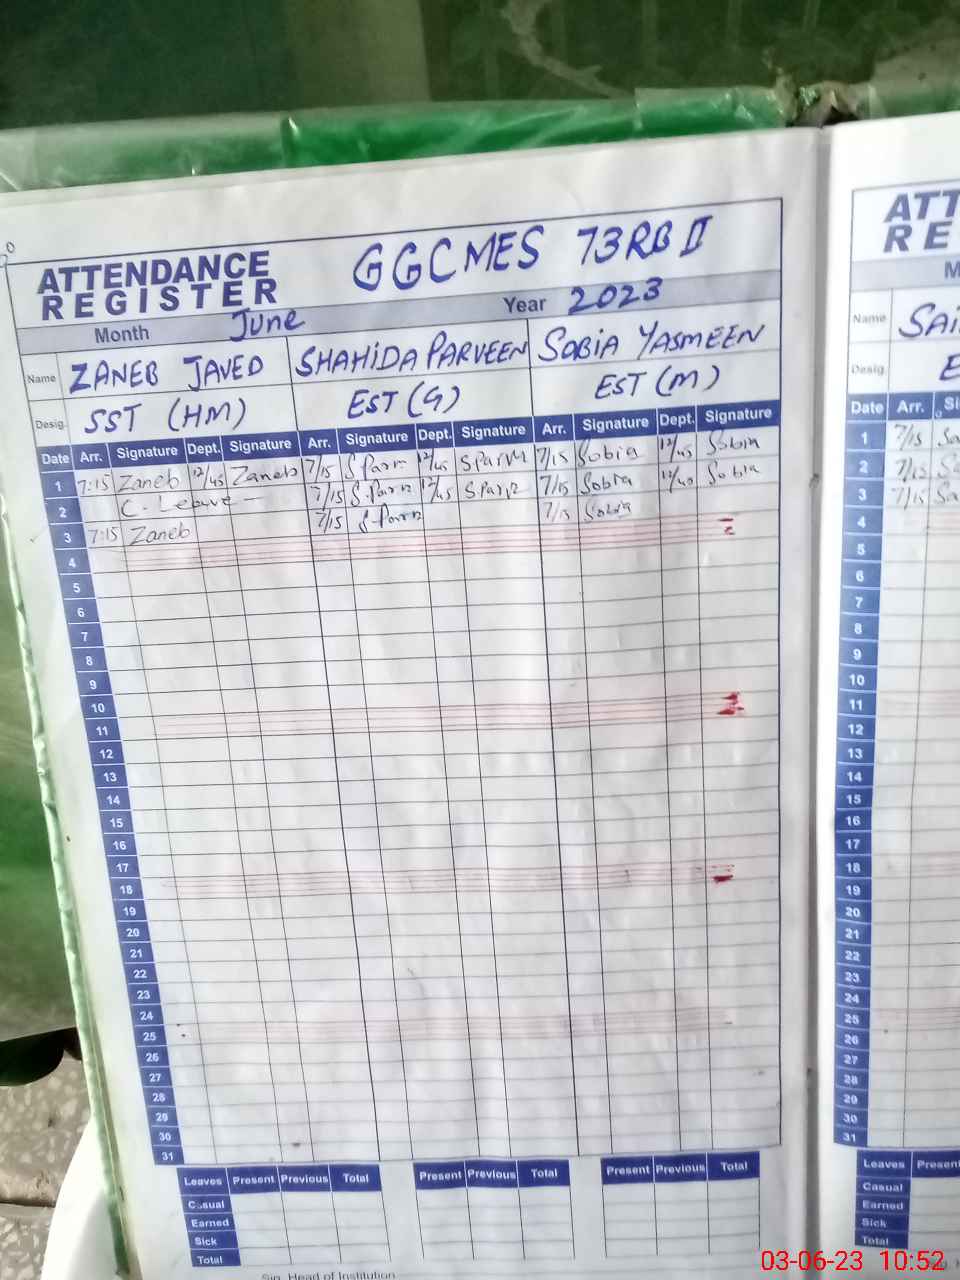 GGCMES 73RB II
ATTENDANCE
REGISTER
Month June Year 2023
Name ZANEB JAVED SHAHIDA PARVEEN SOBIA YASMEEN
Desig. SST (HM) EST (G) EST (M)
Date Arr. Signature Dept. Signature Arr. Signature Dept. Signature Arr. Signature Dept. Signature
1 7:15 Zaneb 12/45 Zaneb 7/15 12/45 7/15 Sobia 12/45 Sobia
2 C. Leave - 7/15 12/45 7/15 Sobia 12/40 Sobia
3 7:15 Zaneb 7/15 7/15 Sobia
4
5
6
7
8
9
10
11
12
13
14
15
16
17
18
19
20
21
22
23
24
25
26
27
28
29
30
31
Leaves Present Previous Total Present Previous Total Present Previous Total
Casual
Earned
Sick
Total
Sig. Head of Institution
ATT
RE
M
Name SAI
Desig. E
Date Arr. Si
1 7/15 Sa
2 7/15 Sa
3 7/15 Sa
4
5
6
7
8
9
10
11
12
13
14
15
16
17
18
19
20
21
22
23
24
25
26
27
28
29
30
31
Leaves Present
Casual
Earned
Sick
Total
03-06-23 10:52